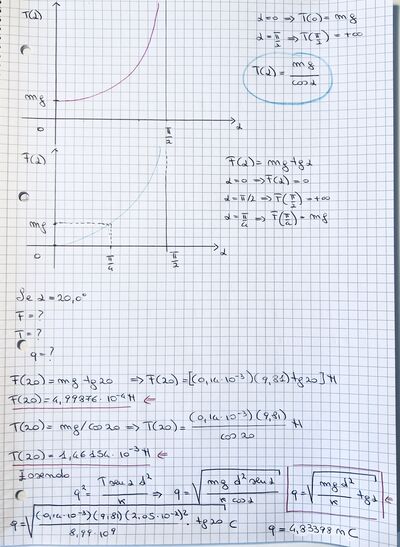 T(α)
α=0 ⇒ T(0) = mg
α=π/2 ⇒ T(π/2) = +∞
T(α) = mg/cosα
mg
0
π/2
α
F(α)
F(α) = mg tgα
α=0 ⇒ F(α) = 0
α=π/2 ⇒ F(π/2) = +∞
α=π/4 ⇒ F(π/4) = mg
mg
0
π/4
π/2
α
Se α=20,0°
F=?
T=?
q=?
F(20)=mg tg20 ⇒ F(20)=[(0,14·10⁻³)(9,81)tg20]N
F(20)=4,99876·10⁻⁴N ⇐
T(20)=mg/cos20 ⇒ T(20)=(0,14·10⁻³)(9,81)/cos20 N
T(20)=1,46154·10⁻³N ⇐
Essendo
q²=T senα d²/k ⇒ q=√(mg d² senα/k cosα)
q=√(mg d²/k tgα) ⇐
q=√((0,14·10⁻³)(9,81)(2,05·10⁻²)²/8,99·10⁹ · tg20) C
q=4,83398 nC